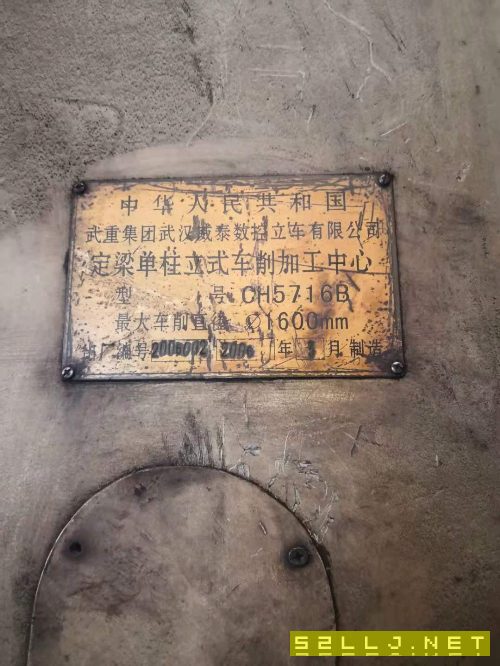 中华人民共和国
武重集团武汉威泰数控立车有限公司
定梁单柱立式车削加工中心
型 号 CH5716B
最大车削直径 Ø1600mm
出厂编号2006002 2006 年 3 月制造
52LLJ.NET